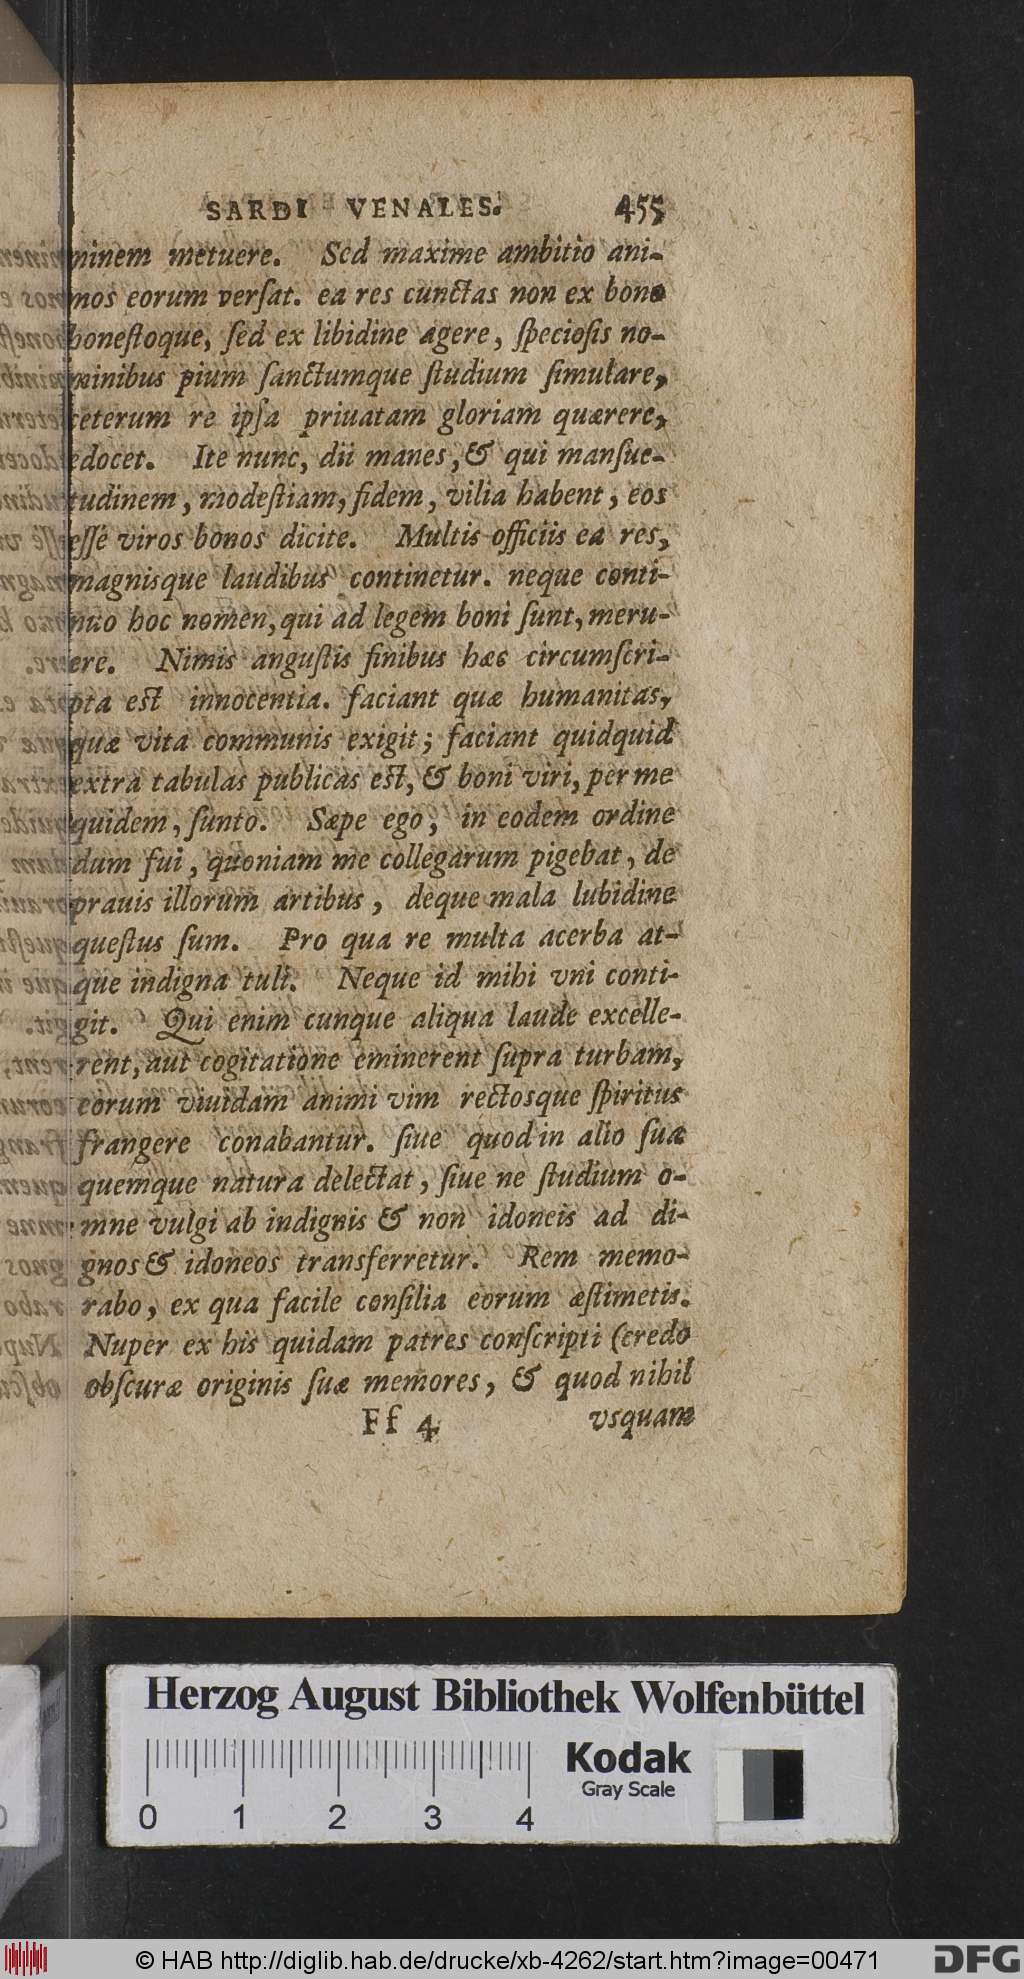 SARDI VENALES. 455
minem metuere. Sed maxime ambitio ani-
mos eorum verſat. ea res cunctas non ex bono
honeſtoque, ſed ex libidine agere, ſpecioſis no-
minibus pium ſanctumque ſtudium ſimulare,
ceterum re ipſa priuatam gloriam quærere,
edocet. Ite nunc, dii manes, & qui manſue-
tudinem, modeſtiam, fidem, vilia habent, eos
eſſe viros bonos dicite. Multis officiis ea res,
magnisque laudibus continetur. neque conti-
nuo hoc nomen, qui ad legem boni ſunt, meru-
ere. Nimis anguſtis finibus hæc circumſcri-
pta eſt innocentia. faciant quæ humanitas,
quæ vita communis exigit; faciant quidquid
extra tabulas publicas eſt, & boni viri, per me
quidem, ſunto. Sæpe ego, in eodem ordine
dum fui, quoniam me collegarum pigebat, de
prauis illorum artibus, deque mala lubidine
queſtus ſum. Pro qua re multa acerba at-
que indigna tuli. Neque id mihi vni conti-
git. Qui enim cunque aliqua laude excelle-
rent, aut cogitatione eminerent ſupra turbam,
eorum viuidam animi vim rectosque ſpiritus
frangere conabantur. ſiue quod in alio ſuæ
quemque natura delectat, ſiue ne ſtudium o-
mne vulgi ab indignis & non idoneis ad di-
gnos & idoneos transferretur. Rem memo-
rabo, ex qua facile conſilia eorum æſtimetis.
Nuper ex his quidam patres conſcripti (credo
obſcuræ originis ſuæ memores, & quod nihil
Ff 4 vsquam
Herzog August Bibliothek Wolfenbüttel
Kodak
Gray Scale
0 1 2 3 4
© HAB http://diglib.hab.de/drucke/xb-4262/start.htm?image=00471
DFG